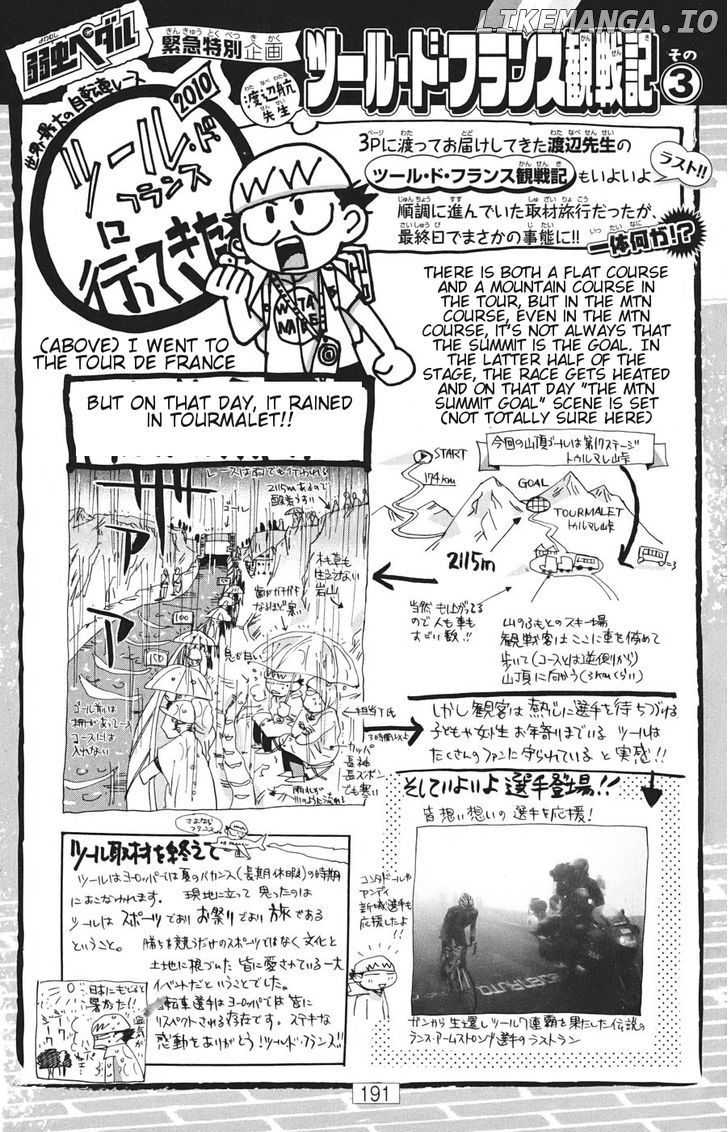 LIKEMANGA.IO
弱虫ペダル
緊急特別企画
渡辺航先生
ツール・ド・フランス観戦記 その3
世界最大の自転車レース
2010
ツール・ド
フランス
に
行ってきた
3Pに渡ってお届けしてきた渡辺先生の
ツール・ド・フランス観戦記もいよいよ
ラスト!!
順調に進んでいた取材旅行だったが、
最終日でまさかの事態に!!
一体何が!?
(ABOVE) I WENT TO
THE TOUR DE FRANCE
THERE IS BOTH A FLAT COURSE
AND A MOUNTAIN COURSE IN
THE TOUR, BUT IN THE MTN
COURSE, EVEN IN THE MTN
COURSE, IT'S NOT ALWAYS THAT
THE SUMMIT IS THE GOAL. IN
THE LATTER HALF OF THE
STAGE, THE RACE GETS HEATED
AND ON THAT DAY "THE MTN
SUMMIT GOAL" SCENE IS SET
(NOT TOTALLY SURE HERE)
BUT ON THAT DAY, IT RAINED
IN TOURMALET!!
今回の山頂ゴールは第17ステージ
トゥルマレ山峠
START
174km
GOAL
TOURMALET
トゥルマレ山峠
2115m
当然も上がってる
ので人も車も
すごい数!!
山のふもとのスキー場
観戦客はここに車を停めて
歩いて(コースとは逆側から)
山頂に向かう(3kmくらい)
レースは雨でも行われる
2115mあるので
酸素うすい
ゴール
木も草も
生えてない
岩山
歯がガチガチ
なるほど寒い
息が白い
100
150
ゴール前は
柵があって
コースには
入れない
担当T氏
3時間以上
カッパ
長袖
長ズボン
でも寒い
しかし観客は熱心に選手を待ちつづける
子どもや女性お年寄りまでいる ツールは
たくさんのファンに守られている と実感!!
そしていよいよ選手登場!!
皆想い想いの選手を応援!
コンタドールや
アンディ
新城選手も
応援したよ
ガンから生還しツール7連覇を果たした伝説の
ランス・アームストロング選手のラストラン
さよなら
フランス
ツール取材を終えて
ツールはヨーロッパでは夏のバカンス(長期休暇)の時期
におこなわれます。現地に立って思ったのは
ツールはスポーツであり お祭りであり 旅である
ということ。勝ちを競うだけのスポーツではなく文化と
土地に根づいた皆に愛されている一大
イベントだということでした。
自転車選手はヨーロッパでは皆に
リスペクトされる存在です。ステキな
感動をありがとう!ツール・ド・フランス!!
日本にもどると
暑かった!!
191